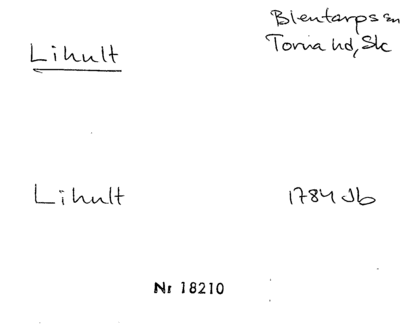 Blentarps sn
Lihult
Torna hd, Sk
Lihult
1784 Jb
Nr 18210